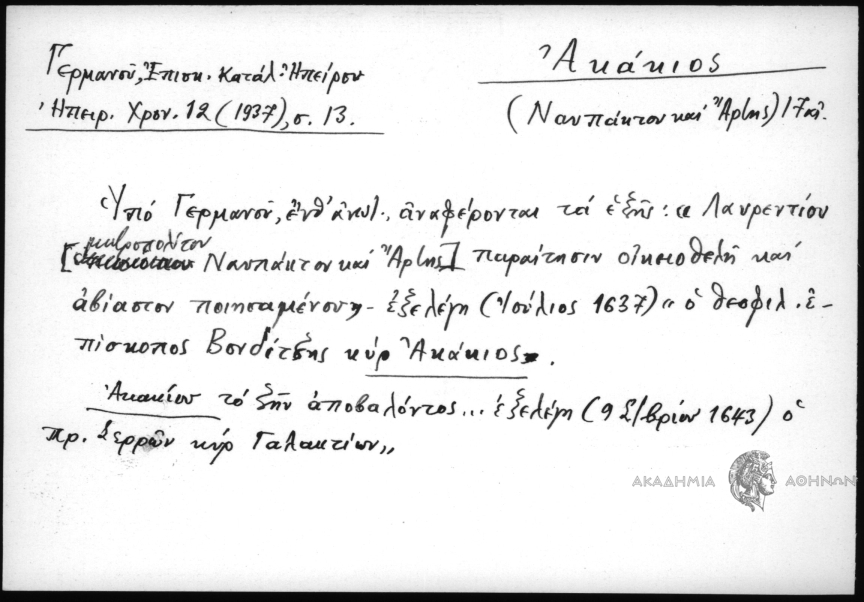 Γερμανοῦ, Ἐπισκ. Κατάλ. Ἠπείρου
Ἠπειρ. Χρον. 12 (1937), σ. 13.
Ἀκάκιος
(Ναυπάκτου καὶ Ἄρτης) 17 αἰ.
Ὑπό Γερμανοῦ, ἔνθ' ἀνωτ., ἀναφέρονται τά ἑξῆς: « Λαυρεντίου
μητροπολίτου
[Ναυπάκτου καὶ Ἄρτης] παραίτησιν οἰκειοθελῆ καί
ἀβίαστον ποιησαμένου» - ἐξελέγη (Ἰούλιος 1637) « ὁ θεοφιλ. ἐ-
πίσκοπος Βονδίτζης κύρ Ἀκάκιος.
Ἀκακίου τό ζῆν ἀποβαλόντος... ἐξελέγη (9 Σ/βρίου 1643) ὁ
πρ. Σερρῶν κύρ Γαλακτίων»
ΑΚΑΔΗΜΙΑ ΑΘΗΝΩΝ